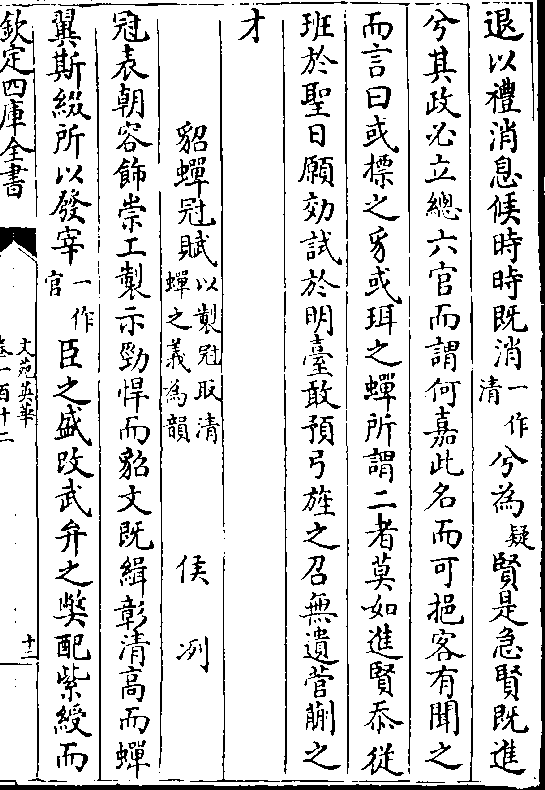 退以禮消息候時時既消一作清兮為疑賢是急賢既進
兮其政必立總六官而謂何嘉此名而可挹客有聞之
而言曰或標之豸或珥之蟬所謂二者莫如進賢忝從
班於聖日願効試於明臺敢預弓旌之召無遺菅蒯之
才
貂蟬冠賦以製冠取清蟬之義為韻 侯冽
冠表朝容飾崇工製示勁悍而貂文既緝彰清高而蟬
翼斯綴所以發宰一作官臣之盛改武弁之獘配紫綬而
欽定四庫全書
文苑英華
卷一百十二
十三